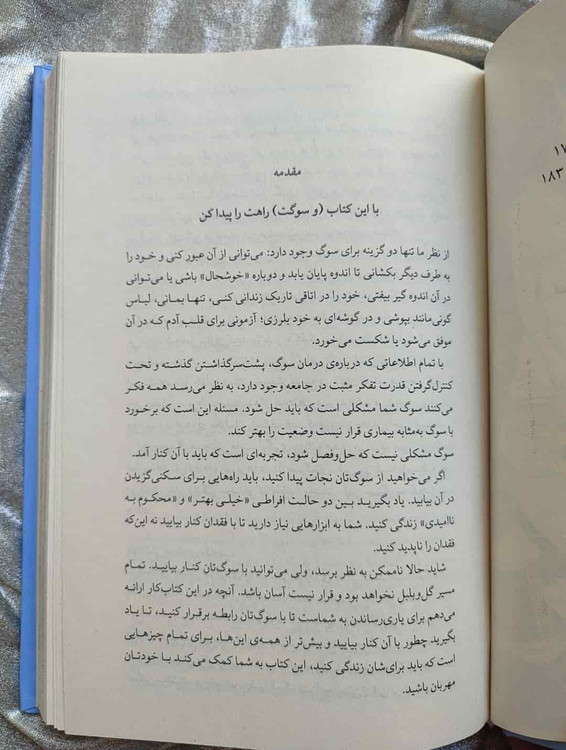 مقدمه
با این کتاب (و سوگت) راهت را پیدا کن
از نظر ما تنها دو گزینه برای سوگ وجود دارد: می‌توانی از آن عبور کنی و خود را
به طرف دیگر بکشانی تا اندوه پایان یابد و دوباره «خوشحال» باشی یا می‌توانی
در آن اندوه گیر بیفتی، خود را در اتاقی تاریک زندانی کنی، تنها بمانی، لباس
گونی‌مانند بپوشی و در گوشه‌ای به خود بلرزی؛ آزمونی برای قلب آدم که در آن
موفق می‌شود یا شکست می‌خورد.
با تمام اطلاعاتی که درباره‌ی درمان سوگ، پشت‌سرگذاشتن گذشته و تحت
کنترل‌گرفتن قدرت تفکر مثبت در جامعه وجود دارد، به نظر می‌رسد همه فکر
می‌کنند سوگ شما مشکلی است که باید حل شود. مسئله این است که برخورد
با سوگ به‌مثابه بیماری قرار نیست وضعیت را بهتر کند.
سوگ مشکلی نیست که حل‌وفصل شود، تجربه‌ای است که باید با آن کنار آمد.
اگر می‌خواهید از سوگ‌تان نجات پیدا کنید، باید راه‌هایی برای سکنی‌گزیدن
در آن بیابید. یاد بگیرید بین دو حالت افراطی «خیلی بهتر» و «محکوم به
ناامیدی» زندگی کنید. شما به ابزارهایی نیاز دارید تا با فقدان کنار بیایید نه این‌که
فقدان را ناپدید کنید.
شاید حالا ناممکن به نظر برسد، ولی می‌توانید با سوگ‌تان کنار بیایید. تمام
مسیر گل‌وبلبل نخواهد بود و قرار نیست آسان باشد. آنچه در این کتاب‌کار ارائه
می‌دهم برای یاری‌رساندن به شماست تا با سوگ‌تان رابطه برقرار کنید، تا یاد
بگیرید چطور با آن کنار بیایید و بیش‌تر از همه‌ی این‌ها، برای تمام چیزهایی
است که باید برای‌شان زندگی کنید، این کتاب به شما کمک می‌کند با خودتان
مهربان باشید.
۱۷
۱۸۳